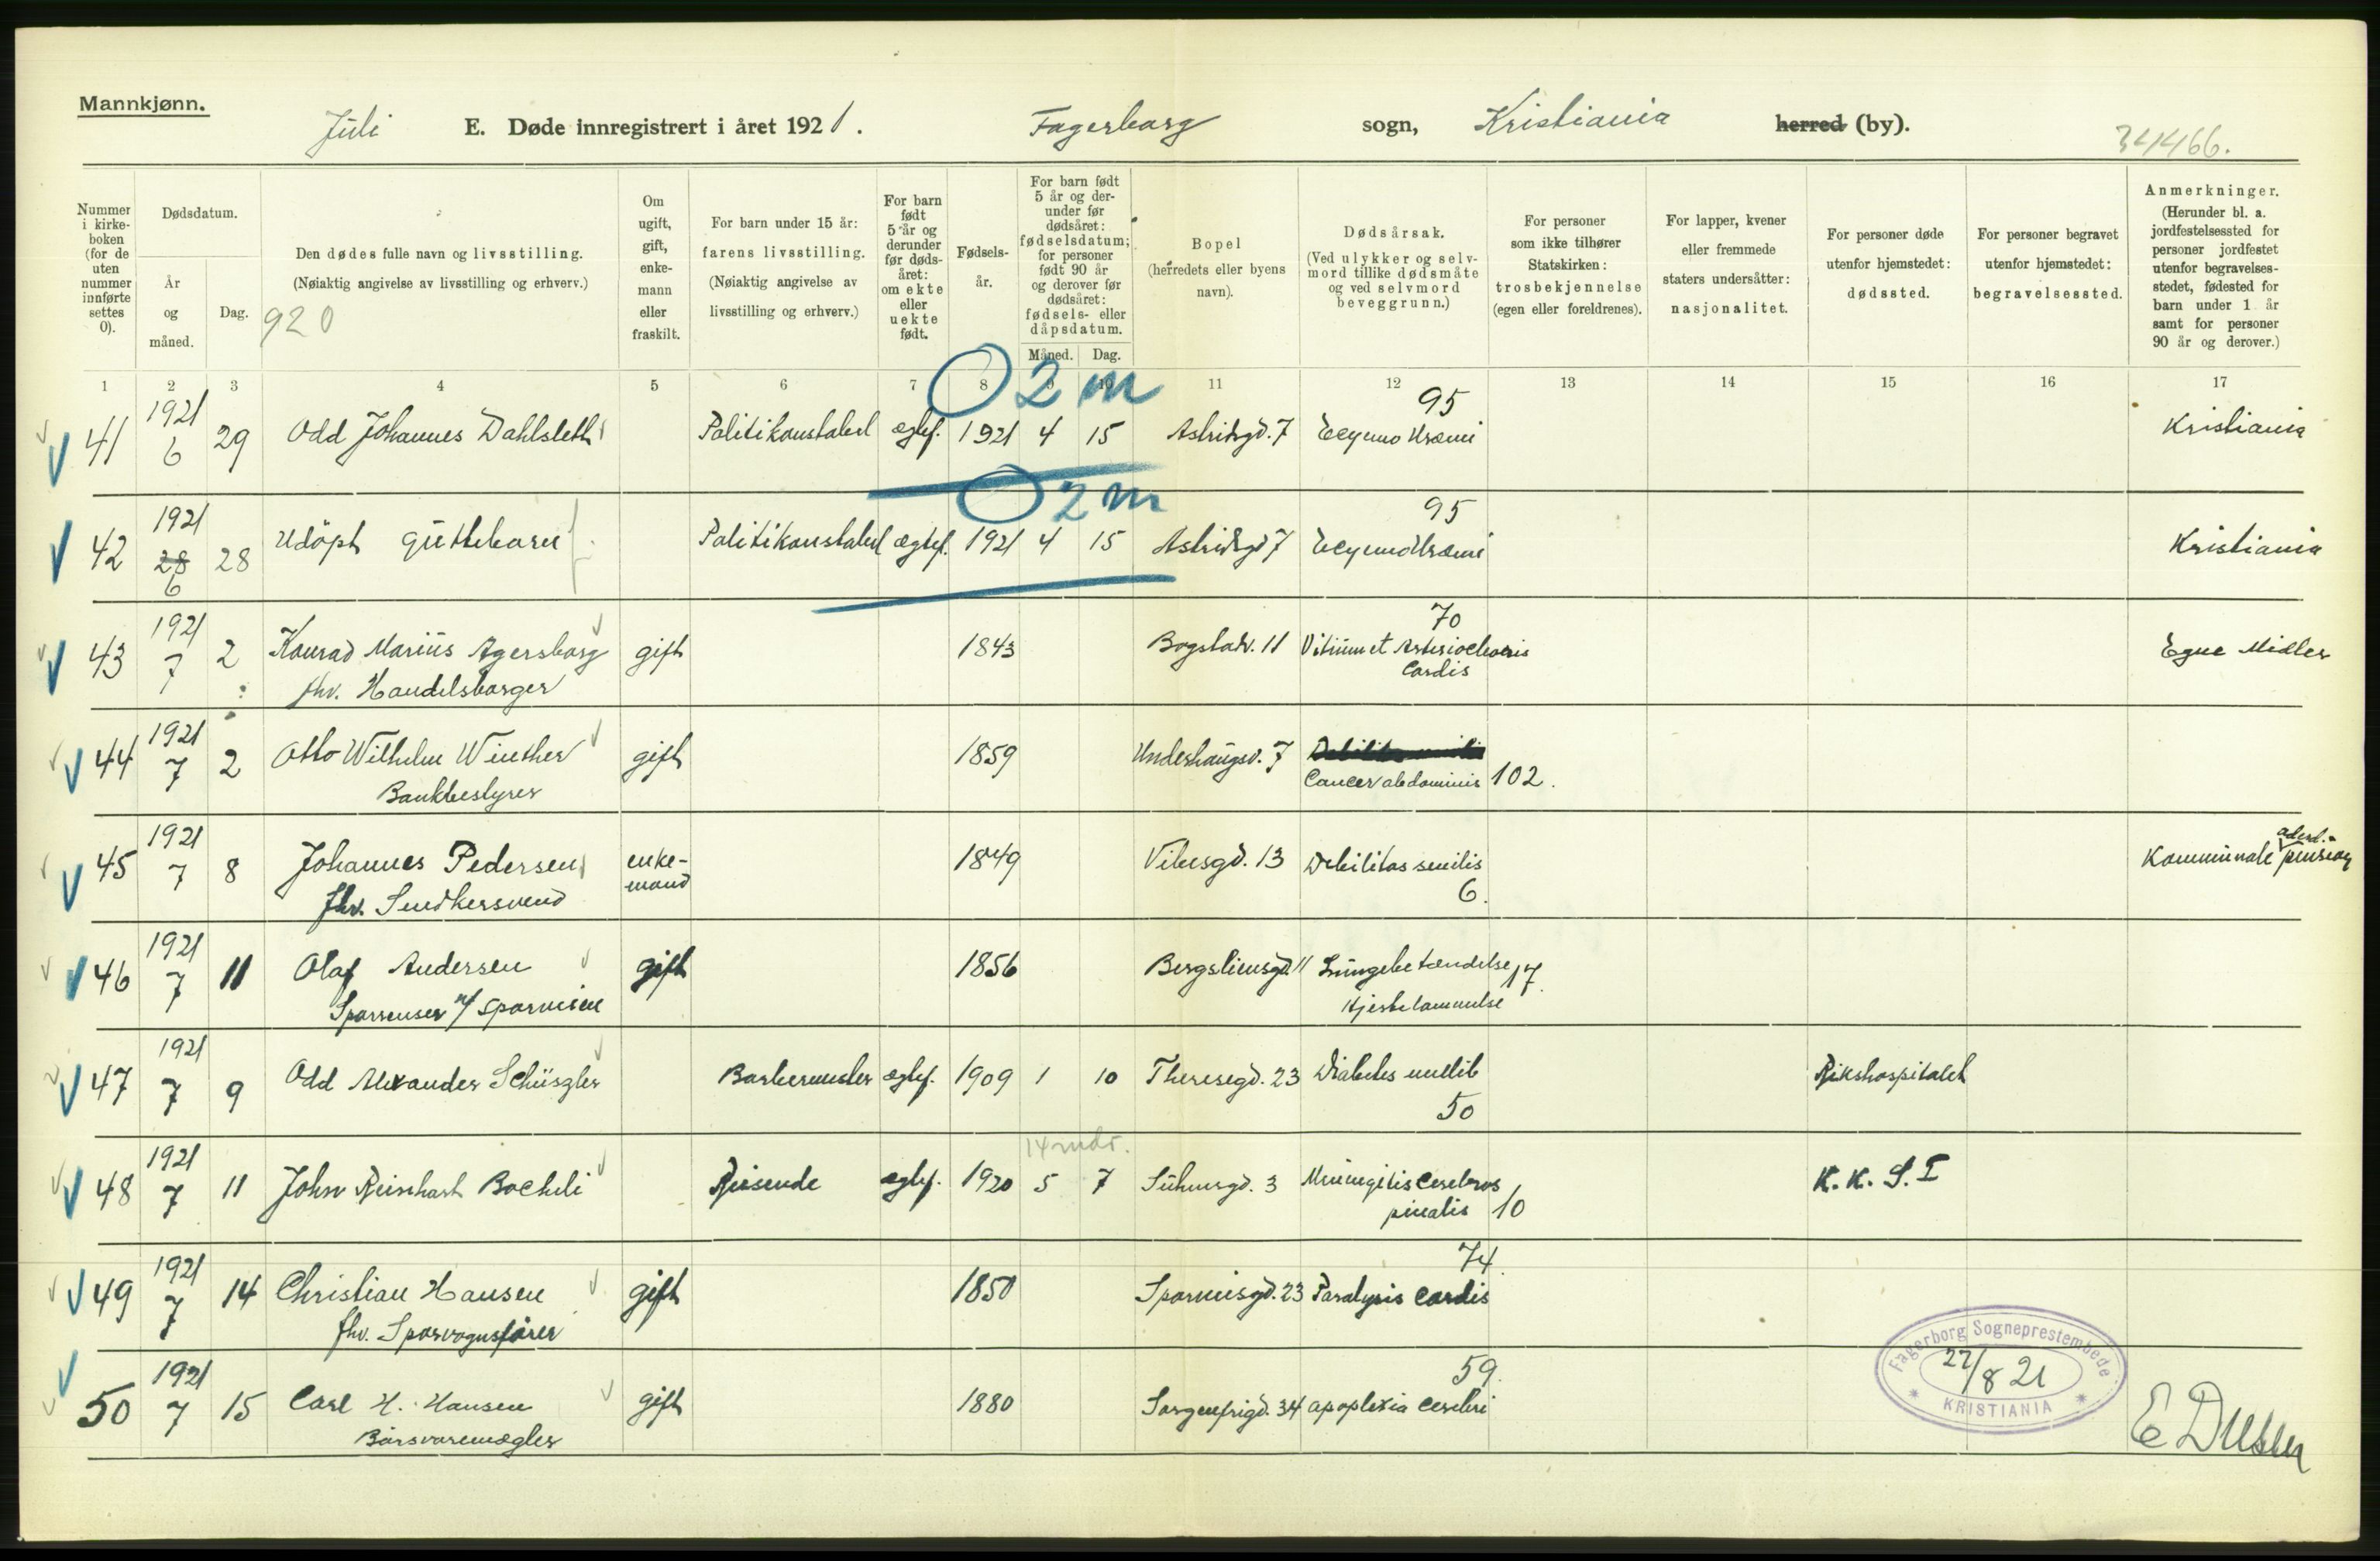 Mannkjønn.
Juli E. Døde innregistrert i året 1921. Fagerborg sogn, Kristiania herred (by).
34466.
Nummer i kirkeboken (for de uten nummer innførte settes 0).
Dødsdatum.
År og måned.
Dag.
Den dødes fulle navn og livsstilling.
(Nøiaktig angivelse av livsstilling og erhverv.)
920
Om ugift, gift, enkemann eller fraskilt.
For barn under 15 år: farens livsstilling. (Nøiaktig angivelse av livsstilling og erhverv.)
For barn født 5 år og derunder før dødsåret: om ekte eller uekte født.
Fødselsår.
For barn født 5 år og derunder før dødsåret: fødselsdatum; for personer født 90 år og derover før dødsåret: fødsels- eller dåpsdatum.
Måned. Dag.
Bopel (herredets eller byens navn).
Dødsårsak. (Ved ulykker og selvmord tillike dødsmåte og ved selvmord beveggrunn.)
For personer som ikke tilhører Statskirken: trosbekjennelse (egen eller foreldrenes).
For lapper, kvener eller fremmede staters undersåtter: nasjonalitet.
For personer døde utenfor hjemstedet: dødssted.
For personer begravet utenfor hjemstedet: begravelsessted.
Anmerkninger. (Herunder bl. a. jordfestelsessted for personer jordfestet utenfor begravelsesstedet, fødested for barn under 1 år samt for personer 90 år og derover.)
1 2 3 4 5 6 7 8 9 10 11 12 13 14 15 16 17
0 2 m
41 1921 6 29 Odd Johannes Dahlsleth Politikonstabel ægtef. 1921 4 15 Astridsgd. 7 95 Kristiania
0 2 m
42 1921 28 6 28 Udöpt Guttebarn Politikonstabel ægtef. 1921 4 15 Astridsgd 7 95 Kristiania
43 1921 7 2 Konrad Marius Agersborg gift 1843 Bogstadv. 11 70 Egne Midler
fhv. Handelsborger Cordis
44 1921 7 2 Otto Wilhelm Winther gift 1859 Underhaugsv. 7
Bankbestyrer Cancer abdominis 102.
45 1921 7 8 Johannes Pedersen enkemand 1849 Vibesgd. 13 Debilitas senilis 6. Kommunale alderd. pension
fhv. Snedkersvend
46 1921 7 11 Olaf Andersen gift 1856 Bergsliensgd. 11 Lungebetændelse 17.
Sporrenser v/ Sporveien Hjertelammelse
47 1921 7 9 Odd Alexander Schüszler Barbermester ægtef. 1909 1 10 Theresegd. 23 Diabetes mellit 50 Rikshospitalet
14 mdr.
48 1921 7 11 John Reinhart Bocheli Reisende ægtef. 1920 5 7 Suhmsgd. 3 Meningitis Cerebros pinalis 10 K. K. S. I
49 1921 7 14 Christian Hansen gift 1850 Sporveisgd. 23 Paralysis Cordis 74.
fhv. Sporvognsfører
50 1921 7 15 Carl H. Hansen gift 1880 Sorgenfrigd. 34 apoplexia Cerebri 59.
Börsvaremægler
Fagerborg Sogneprestembede
22/8 21
KRISTIANIA